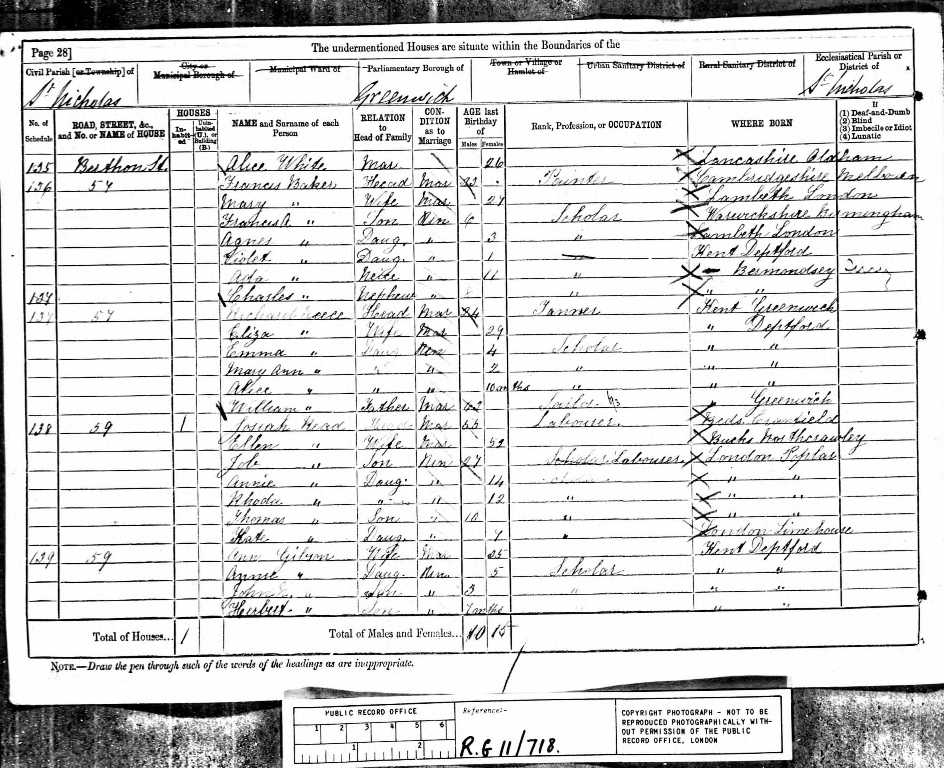 Page 28]
The undermentioned Houses are situate within the Boundaries of the
Civil Parish [or Township] of
City or Municipal Borough of
Municipal Ward of
Parliamentary Borough of
Town or Village or Hamlet of
Urban Sanitary District of
Rural Sanitary District of
Ecclesiastical Parish or District of
St Nicholas Greenwich St Nicholas
No. of Schedule
ROAD, STREET, &c., and No. or NAME of HOUSE
HOUSES
In-habit-ed
Unin-habited (U.), or Building (B.)
NAME and Surname of each Person
RELATION to Head of Family
CON-DITION as to Marriage
AGE last Birthday of
Males Females
Rank, Profession, or OCCUPATION
WHERE BORN
If
(1) Deaf-and-Dumb
(2) Blind
(3) Imbecile or Idiot
(4) Lunatic
135 Berthon St. Alice White Mar 26 Lancashire Oldham
136 57 Francis Baker Head Mar 33 Painter Cambridgeshire Melbourn
Mary " Wife Mar 27 Lambeth London
Francis A " Son Unm 6 Scholar Warwickshire Birmingham
Agnes " Daug. " 3 " Lambeth London
Violet " Daug. " 1 Kent Deptford
Ada " Neice " 11 " Bermondsey
137 Charles " Nephew " " " "
137 57 Richard Head Mar 34 Tanner Kent Greenwich
Eliza " Wife Mar 29 " Deptford
Emma " Daug Unm 4 Scholar " "
Mary Ann " " " 2 " "
Alice " " " 10 mths " " "
William " Father Mar 62 " Greenwich
138 59 1 Josiah Head Mar 55 Labourer. Beds Cranfield
Ellen " Wife Mar 52 Bucks Northcrawley
Job " Son Unm 27 Labourer London Poplar
Annie " Daug. " 14 " "
Rhoda " " " 12 " " "
Thomas " Son " 10 " " "
Kate " Daug. " 7 " London Limehouse
139 59 Ann Gibson Wife Mar 25 Kent Deptford
Annie " Daug. Unm 5 Scholar " "
John " Son " 3 " " "
Herbert " Son " 7 mths " "
Total of Houses... 1 Total of Males and Females... 10 15
NOTE.—Draw the pen through such of the words of the headings as are inappropriate.
PUBLIC RECORD OFFICE
1 2 3 4 5 6
1 2
Reference:-
R.G 11/718.
COPYRIGHT PHOTOGRAPH - NOT TO BE
REPRODUCED PHOTOGRAPHICALLY WITH-
OUT PERMISSION OF THE PUBLIC
RECORD OFFICE, LONDON